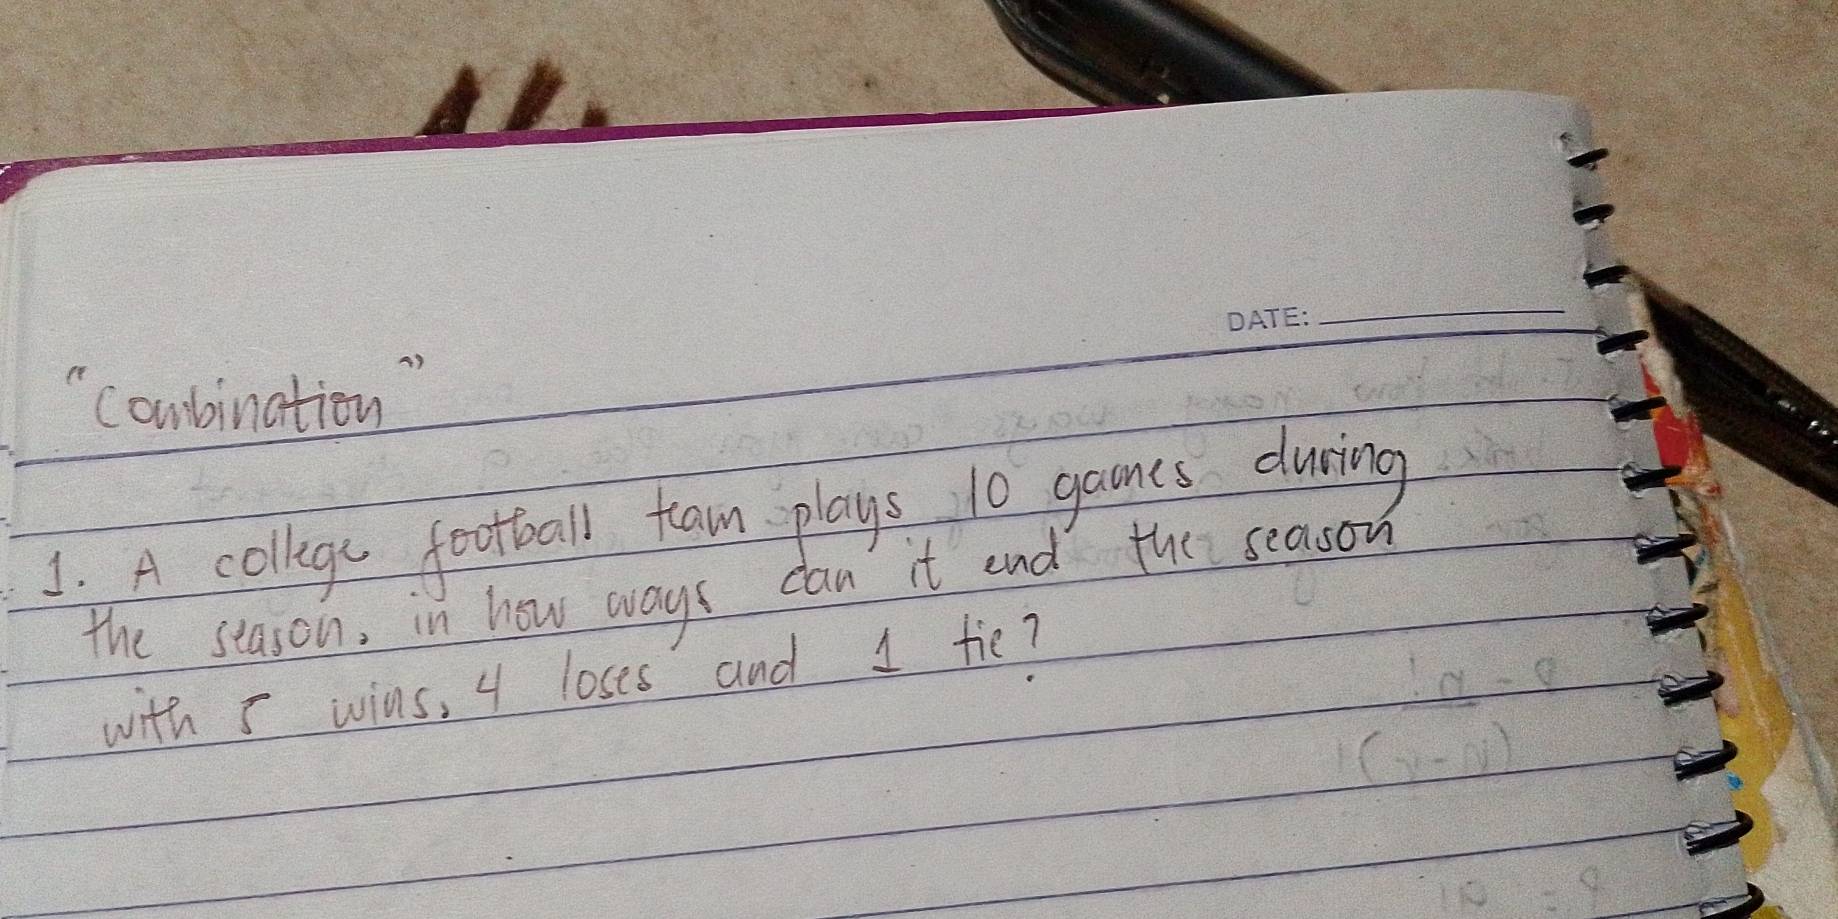 DATE:
"Combination"
1. A college football team plays 10 games during
the season. in how ways can it end the season
with 5 wins, 4 loses and 1 tie?